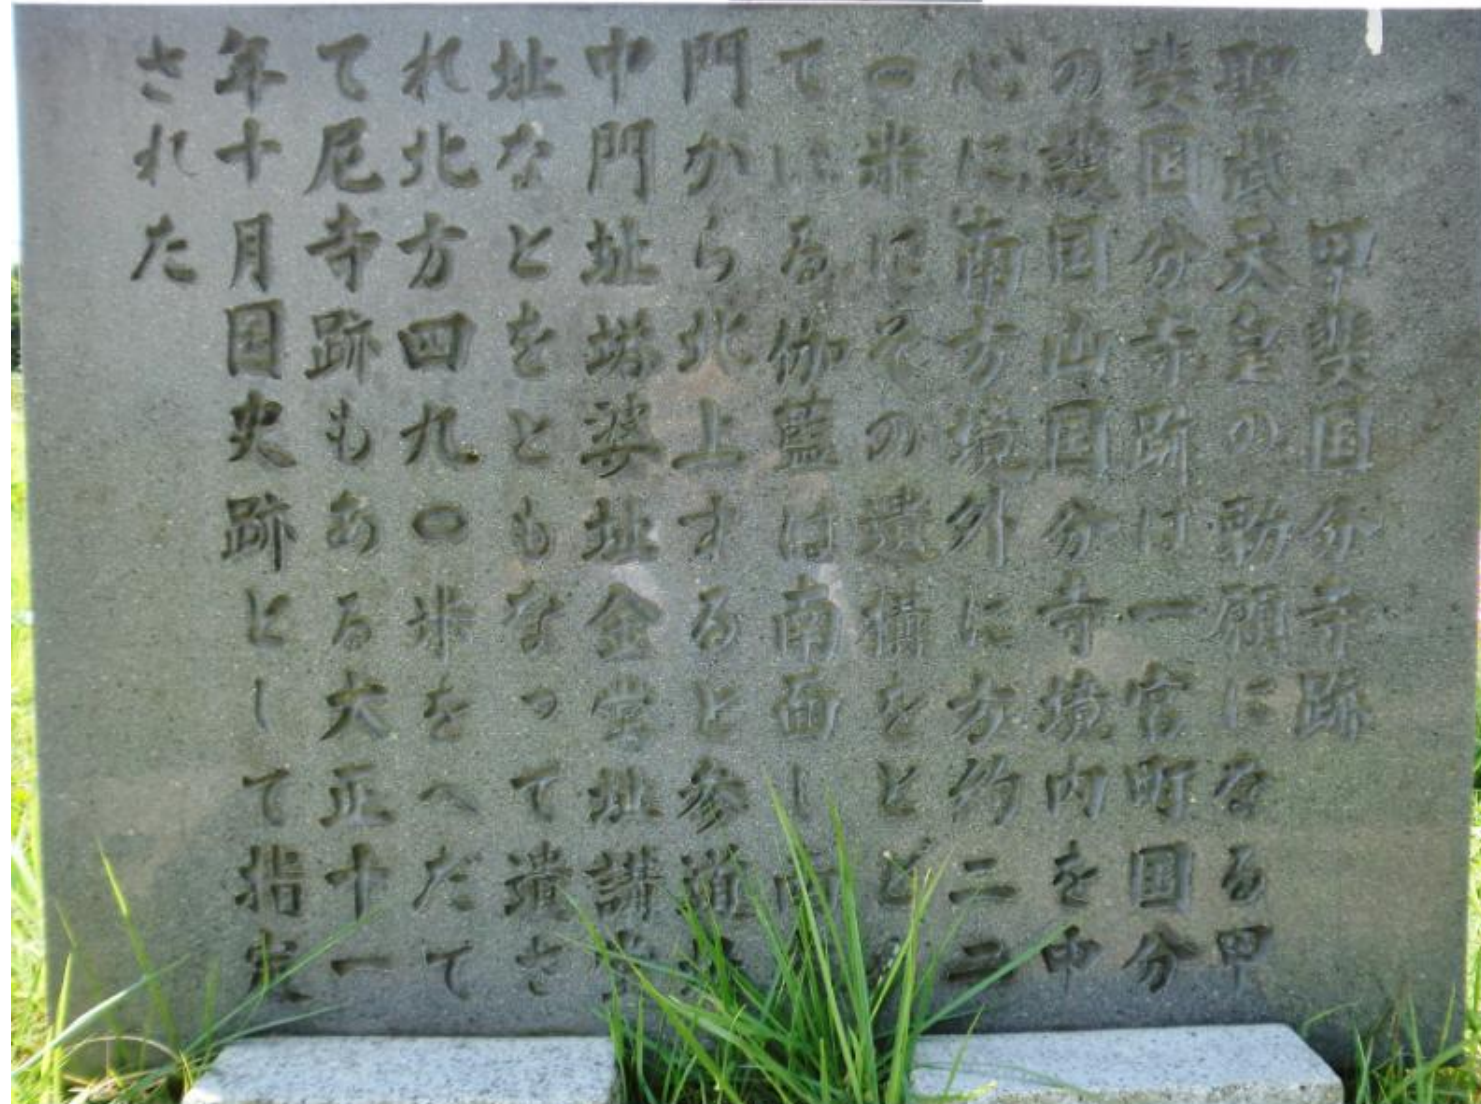 甲斐国分寺跡
聖武天皇の勅願になる甲
斐国分寺跡は一宮町国分
の護国山国分寺境内を中
心に南方境外に方約二二
一米にその遺構をとど
ている伽藍は南面し南
門から北上すると参道
中門址塔婆址金堂址講堂
址なとをともなって遺さ
れ北方四九〇米をへだて
て尼寺跡もある大正十一
年十月国史跡として指定
された